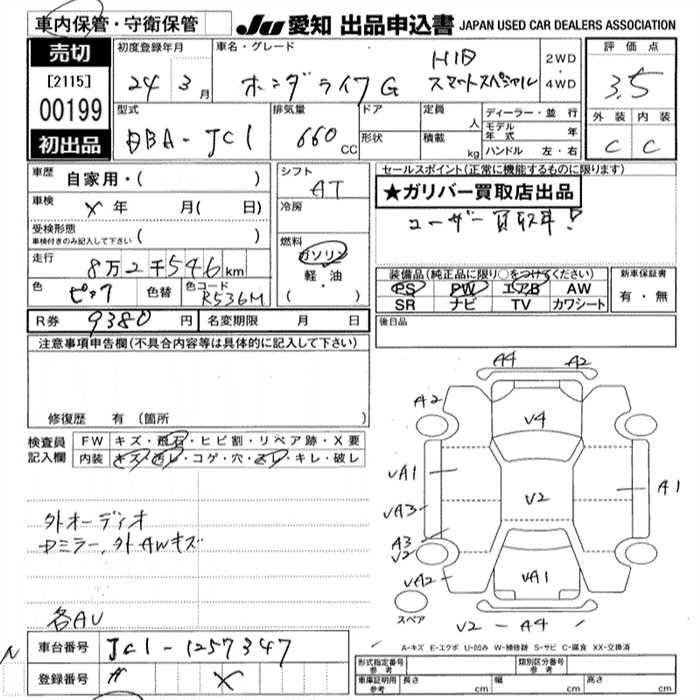 車内保管・守衛保管
JU 愛知 出品申込書 JAPAN USED CAR DEALERS ASSOCIATION
売切
[2115]
00199
初出品
初度登録年月
24年 3月
車名・グレード
ホンダ ライフ G
HID
スマートスペシャル
2WD
・
4WD
評価点
3.5
外装 内装
C C
型式
DBA-JC1
排気量
660 CC
ドア
形状
定員 人
積載 kg
ディーラー・並行
モデル年式 年
ハンドル 左・右
車歴 自家用・( )
車検 X 年 月( 日)
受検形態
車検付きのみ記入して下さい ( )
走行 8万2千546km
色 ピンク 色替 色コード R536M
シフト
AT
冷房
燃料
ガソリン
軽・油
( ・ )
セールスポイント(正常に機能するものに限ります)
★ガリバー買取店出品
ユーザー買取車!
装備品(純正品に限り○をつけてください)
PS PW エアB AW
SR ナビ TV カワシート
新車保証書
有・無
R券 9380円 名変期限 月 日
後日品
注意事項申告欄(不具合内容等は具体的に記入して下さい)
修復歴 有(箇所 )
検査員記入欄
FW キズ・飛石・ヒビ割・リペア跡・X要
内装 キズ・汚レ・コゲ・穴・スレ・キレ・破レ
外オーディオ
Dミラー、外AWキズ
各AU
A4 A2
A2
V4
UA1
A1
V2
UA3
A3
V2
UA2
UA1
スペア
V2 - A4
A-キズ E-エクボ U-凹み W-補修跡 S-サビ C-腐食 XX-交換済
車台番号 JC1-1257347
登録番号 X
N
形式指定番号 参考
類別区分番号 参考
車庫証明用 参考 長さ cm 幅 cm 高さ cm